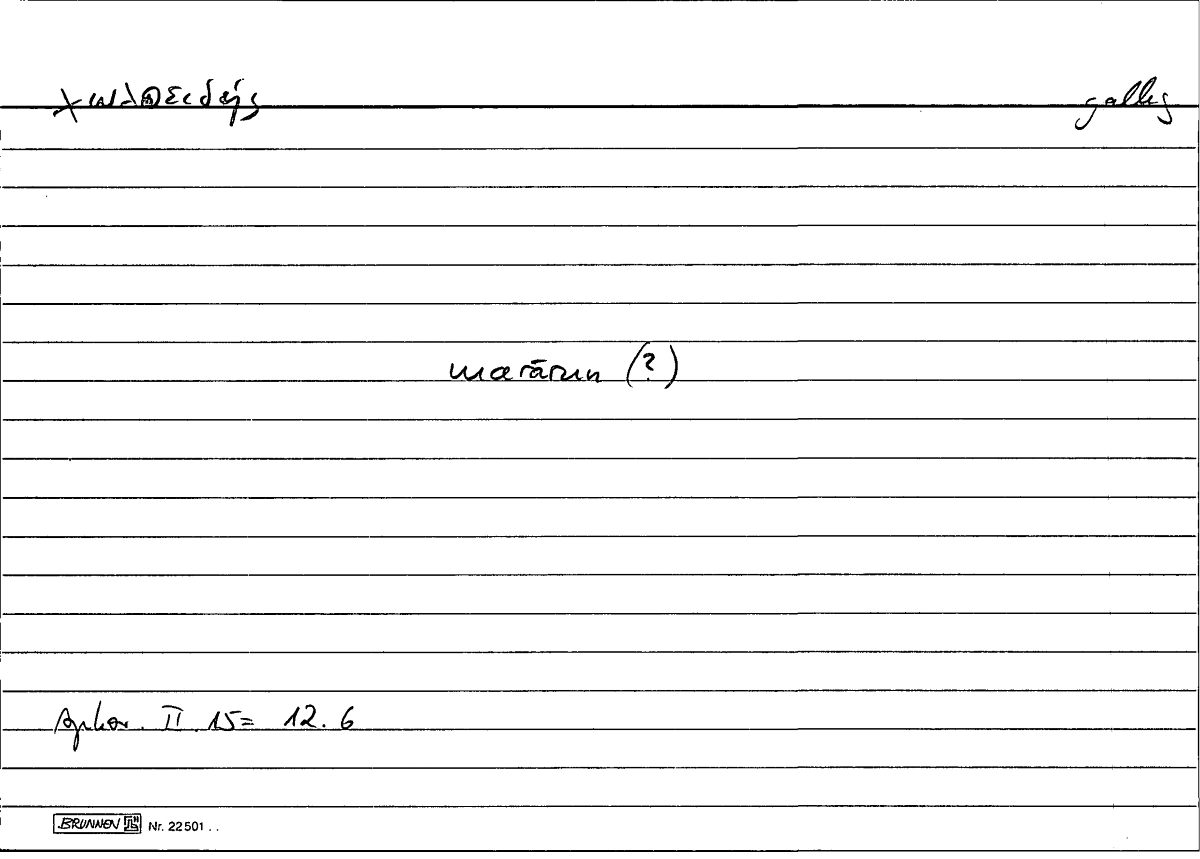 χολοειδής gallig
marārun (?)
Aphor. II. 15= 12. 6
BRUNNEN Nr. 22501 . .